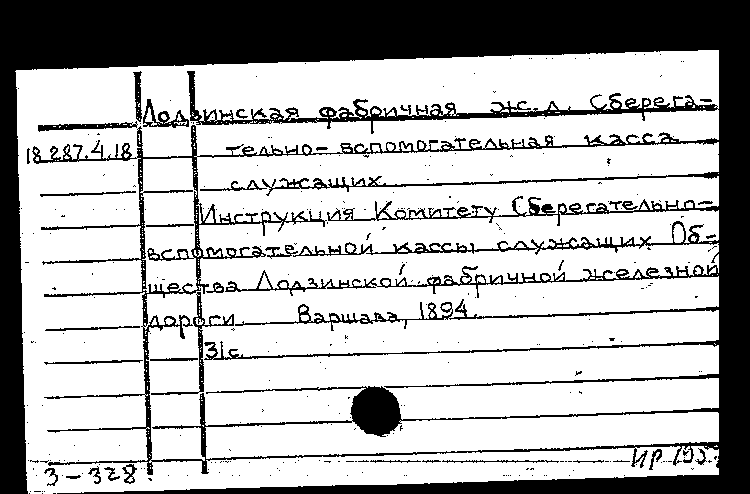 Лодзинская фабричная ж.д. Сберега-
18.287.4.18 тельно-вспомогательная касса
служащих.
Инструкция Комитету Сберегательно-
вспомогательной кассы служащих Об-
щества Лодзинской фабричной железной
дороги. Варшава, 1894.
31с.
3-328
ИР